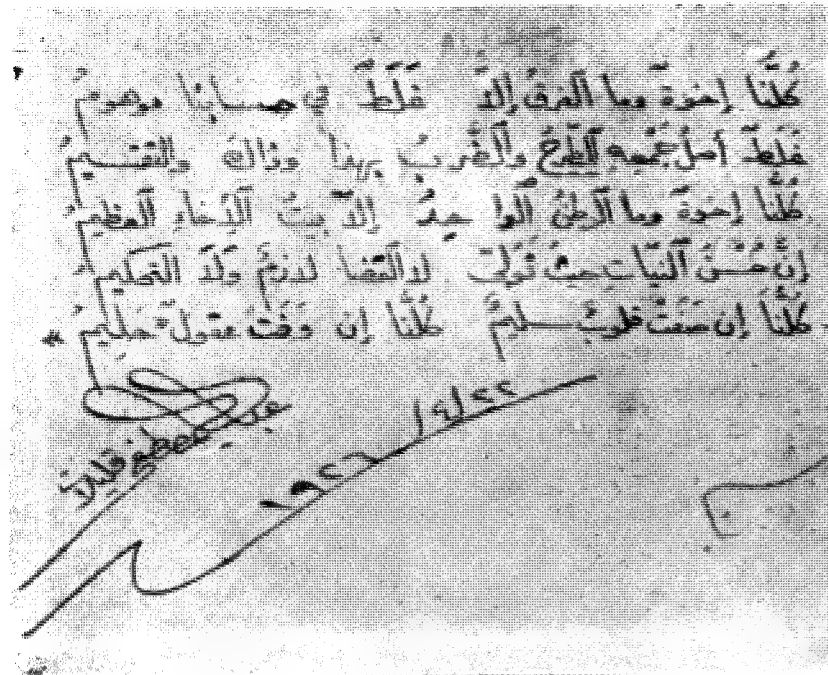 كُلُّنَا إخوةٌ وما الفرقُ إلّا غَلَطٌ في حسابنا موهومُ
غَلَطٌ أصلُ جَمْعِهِ الطَّرحُ والضَّربُ بهذا وذاك والتقسيمُ
كُلُّنا إخوةٌ وما الوطنُ الواحدُ إلّا بيتُ الإخاءِ العظيمُ
إنَّ حُسْنَ النيّاتِ حيثُ تَوَلّى لا القضا لازمٌ ولا التحكيمُ
كُلُّنا إن صَفَتْ قلوبٌ سليمٌ كُلُّنا إن وَفَتْ عقولٌ حليمُ *
قليلات
٢٢/٤/١٩٢٦